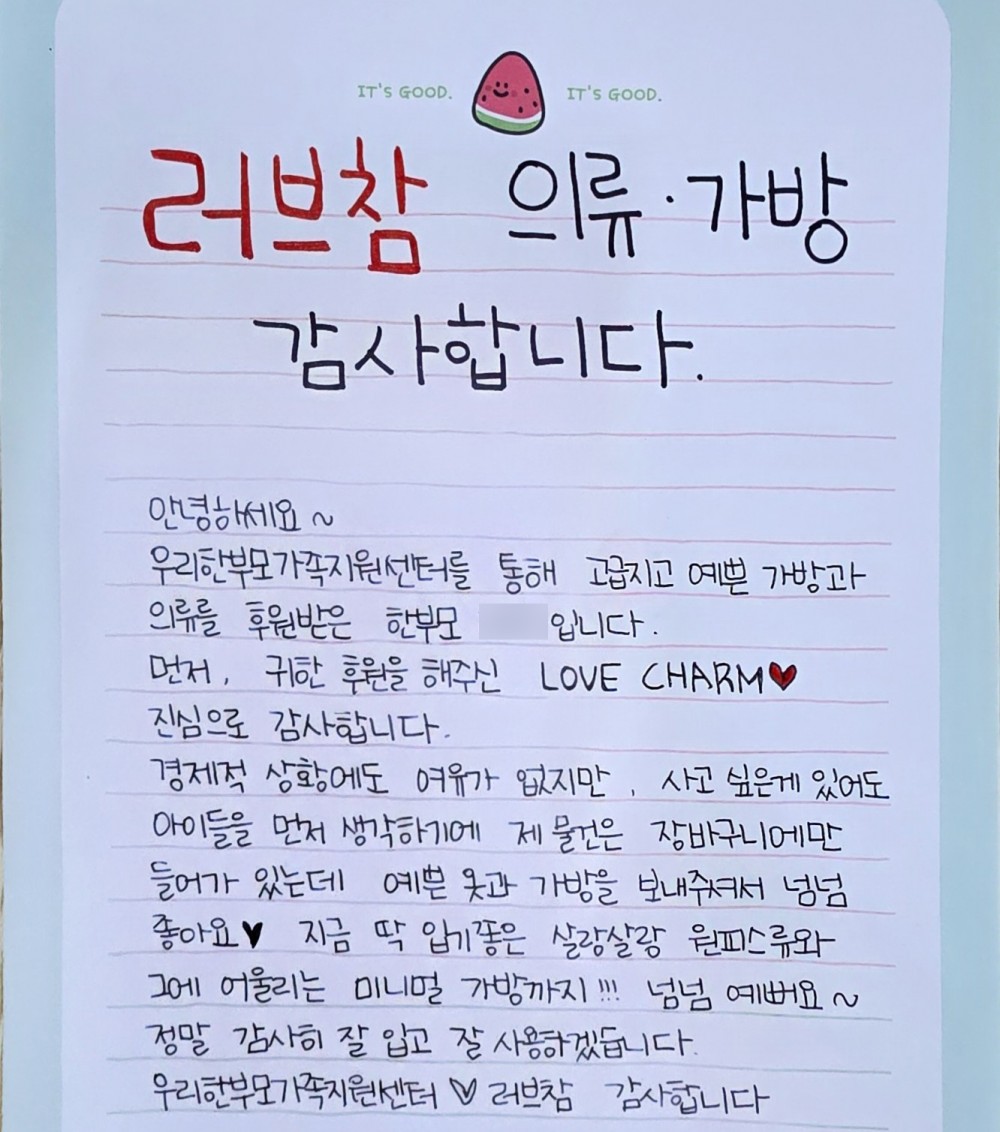 IT'S GOOD. IT'S GOOD.
러브참 의류·가방
감사합니다.
안녕하세요~
우리한부모가족지원센터를 통해 고급지고 예쁜 가방과
의류를 후원받은 한부모 입니다.
먼저, 귀한 후원을 해주신 LOVE CHARM♥
진심으로 감사합니다.
경제적 상황에도 여유가 없지만, 사고 싶은게 있어도
아이들을 먼저 생각하기에 제 물건은 장바구니에만
들어가 있는데 예쁜 옷과 가방을 보내주셔서 넘넘
좋아요♥ 지금 딱 입기좋은 살랑살랑 원피스류와
그에 어울리는 미니멀 가방까지!!! 넘넘 예뻐요~
정말 감사히 잘 입고 잘 사용하겠습니다.
우리한부모가족지원센터 ♡ 러브참 감사합니다